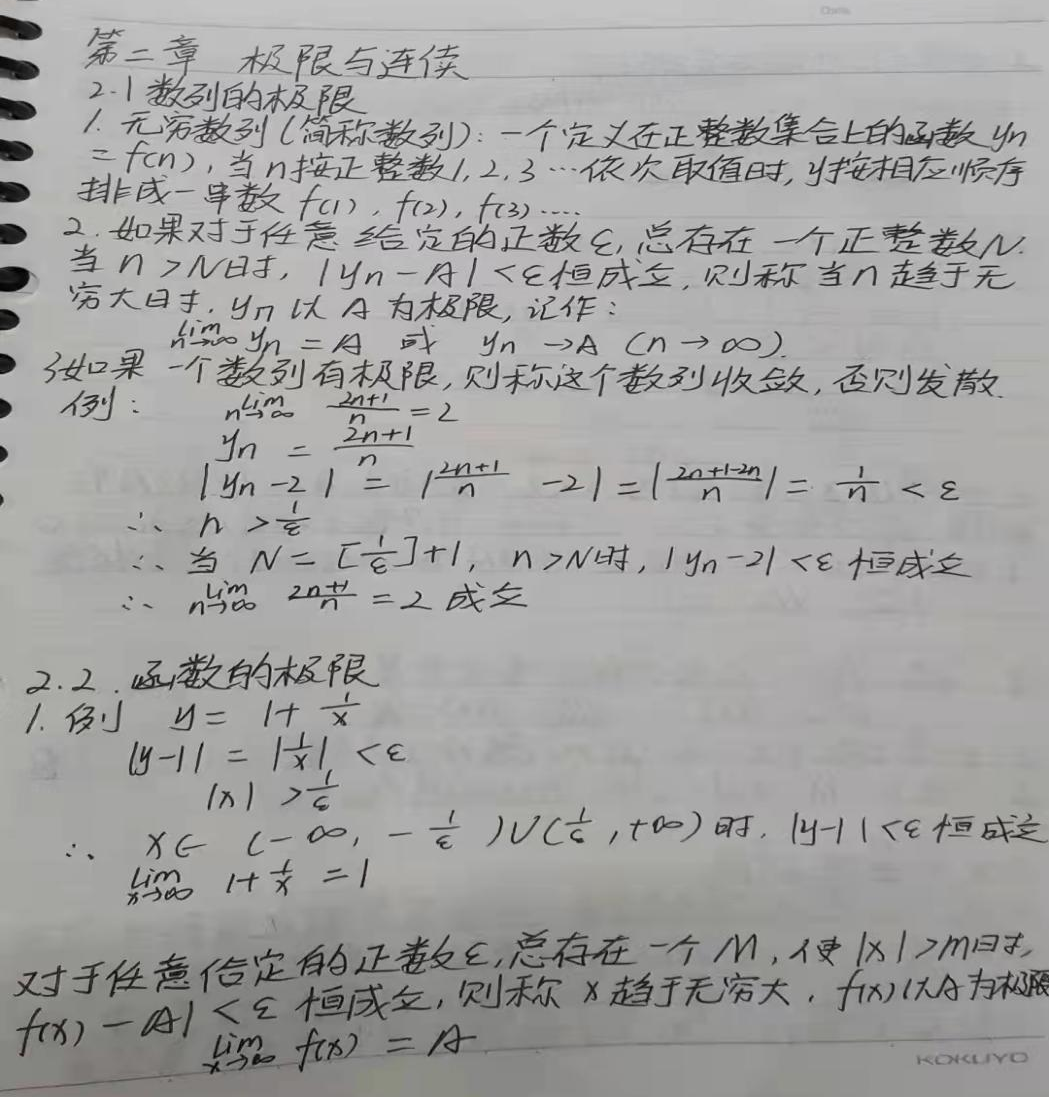 第二章 极限与连续
2.1 数列的极限
1. 无穷数列(简称数列): 一个定义在正整数集合上的函数 yn
= f(n), 当n按正整数1, 2, 3 …依次取值时, y按相应顺序
排成一串数 f(1), f(2), f(3)….
2. 如果对于任意给定的正数ε, 总存在一个正整数N.
当 n > N时, |yn - A| < ε恒成立, 则称当n趋于无
穷大时, yn 以 A 为极限, 记作:
lim n→∞ yn = A 或 yn → A (n → ∞).
3如果一个数列有极限, 则称这个数列收敛, 否则发散.
例: lim n→∞ (2n+1)/n = 2
yn = (2n+1)/n
|yn - 2| = |(2n+1)/n - 2| = |(2n+1-2n)/n| = 1/n < ε
∴ n > 1/ε
∴ 当 N = [1/ε]+1, n > N时, |yn - 2| < ε 恒成立
∴ lim n→∞ (2n+1)/n = 2 成立
2.2. 函数的极限
1. 例 y = 1 + 1/x
|y-1| = |1/x| < ε
|x| > 1/ε
∴ x∈ (-∞, -1/ε)∪(1/ε, +∞)时, |y-1| < ε 恒成立
lim x→∞ 1 + 1/x = 1
对于任意给定的正数ε, 总存在一个M, 使|x| > M时,
f(x) - A| < ε 恒成立, 则称 x 趋于无穷大, f(x)以A为极限
lim x→∞ f(x) = A
KOKUYO